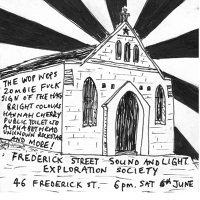 THE WOP WOPS
ZOMBIE FUCK
SIGN OF THE HAG
BRIGHT COLOURS
HANNAH CHERRY
PUBLIC TOILET LTD
ALPHABETHEAD
UNKNOWN ROCKSTAR
AND MORE!
FREDERICK STREET SOUND AND LIGHT
EXPLORATION SOCIETY
46 FREDERICK ST. - 6pm. SAT 6TH JUNE